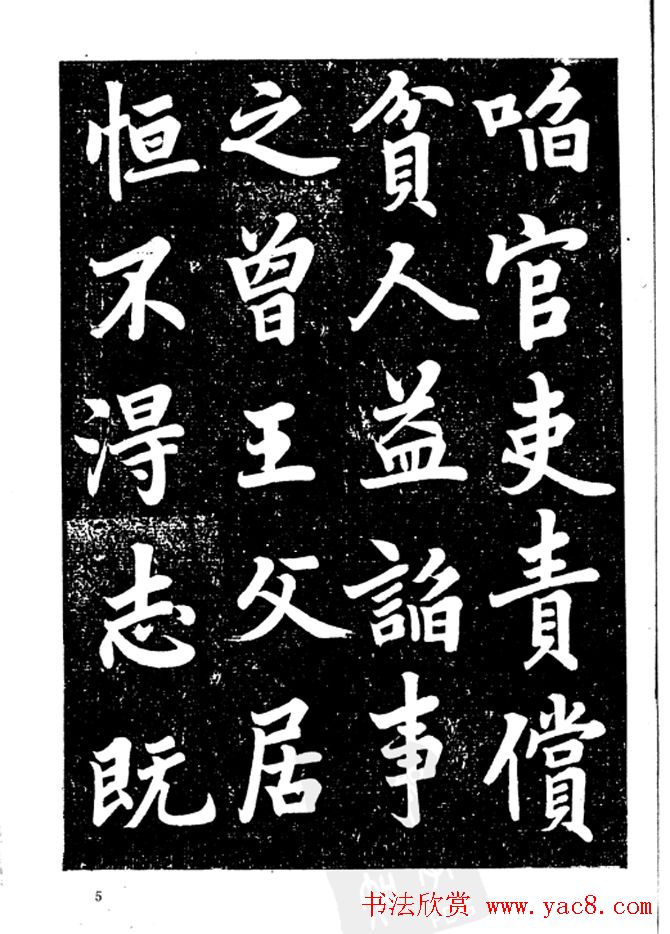 啗官吏責償
貧人益諂事
之曾王父居
恒不得志既
5
书法欣赏 www.yac8.com